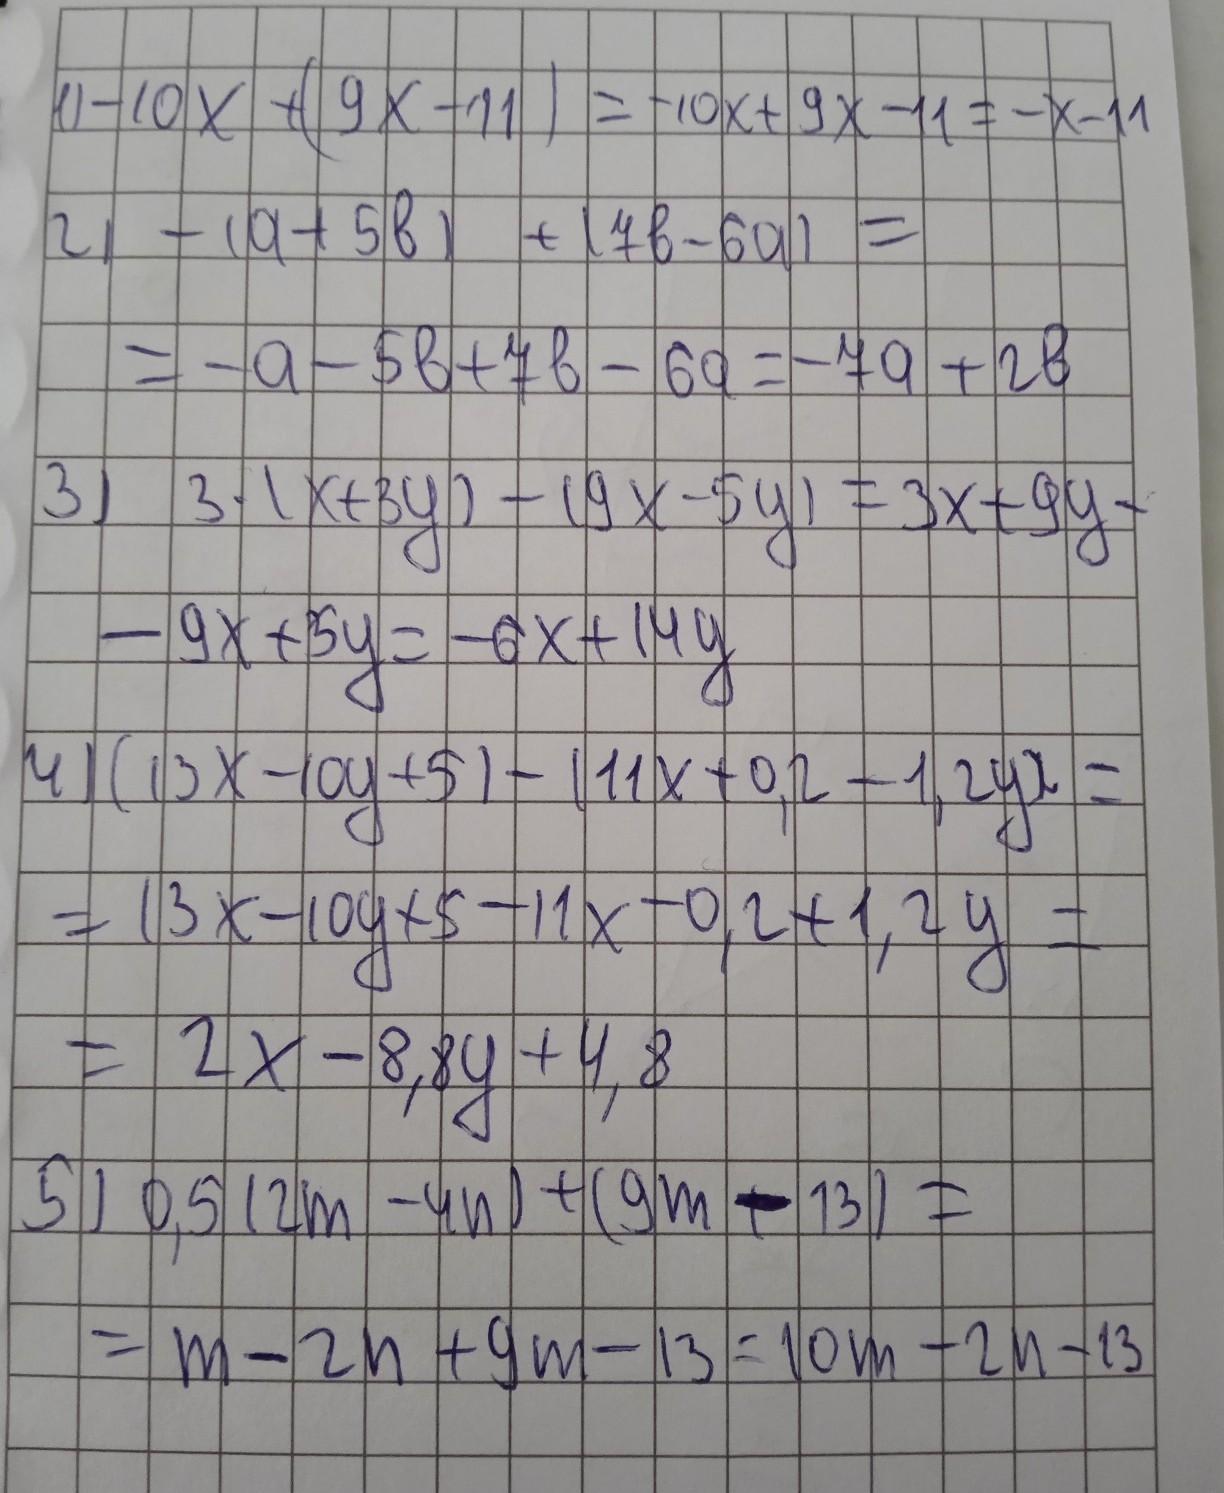 1) -10x + (9x - 11) = -10x + 9x - 11 = -x - 11
2) - (a + 5b) + (7b - 6a) =
= -a - 5b + 7b - 6a = -7a + 2b
3) 3·(x + 3y) - (9x - 5y) = 3x + 9y -
- 9x + 5y = -6x + 14y
4) (13x - 10y + 5) - (11x + 0,2 - 1,2y) =
= 13x - 10y + 5 - 11x - 0,2 + 1,2y =
= 2x - 8,8y + 4,8
5) 0,5(2m - 4n) + (9m - 13) =
= m - 2n + 9m - 13 = 10m - 2n - 13